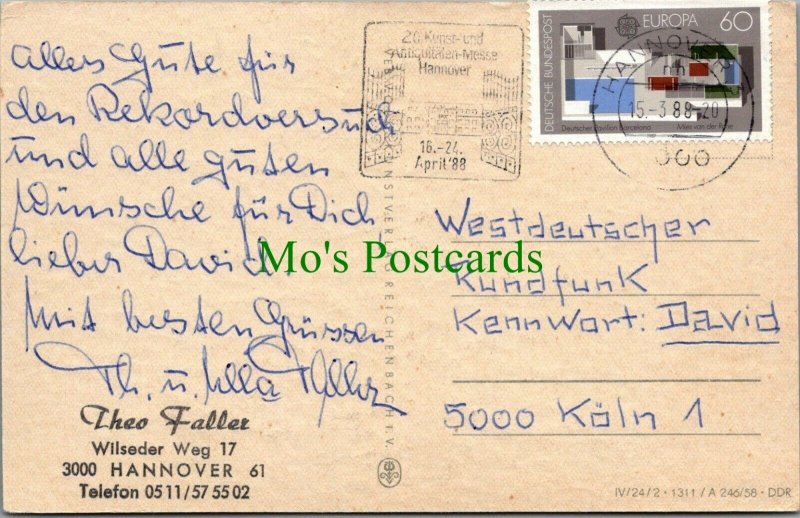 Alles Gute für
den Rekordversuch
und alle guten
Wünsche für Dich
lieber David!
Mit besten Grüssen
Th. u. Ulla Faller
Theo Faller
Wilseder Weg 17
3000 HANNOVER 61
Telefon 0511/57 55 02
20. Kunst- und
Antiquitäten-Messe
Hannover
16.-24.
April '88
DEUTSCHE BUNDESPOST
EUROPA 60
Deutscher Pavillon Barcelona
Mies van der Rohe
HANNOVER
15.-3.88-20
300
Westdeutscher
Rundfunk
Kennwort: David
5000 Köln 1
Mo's Postcards
REICHENBACH I. V.
IV/24/2 · 1311 / A 246/58 · DDR